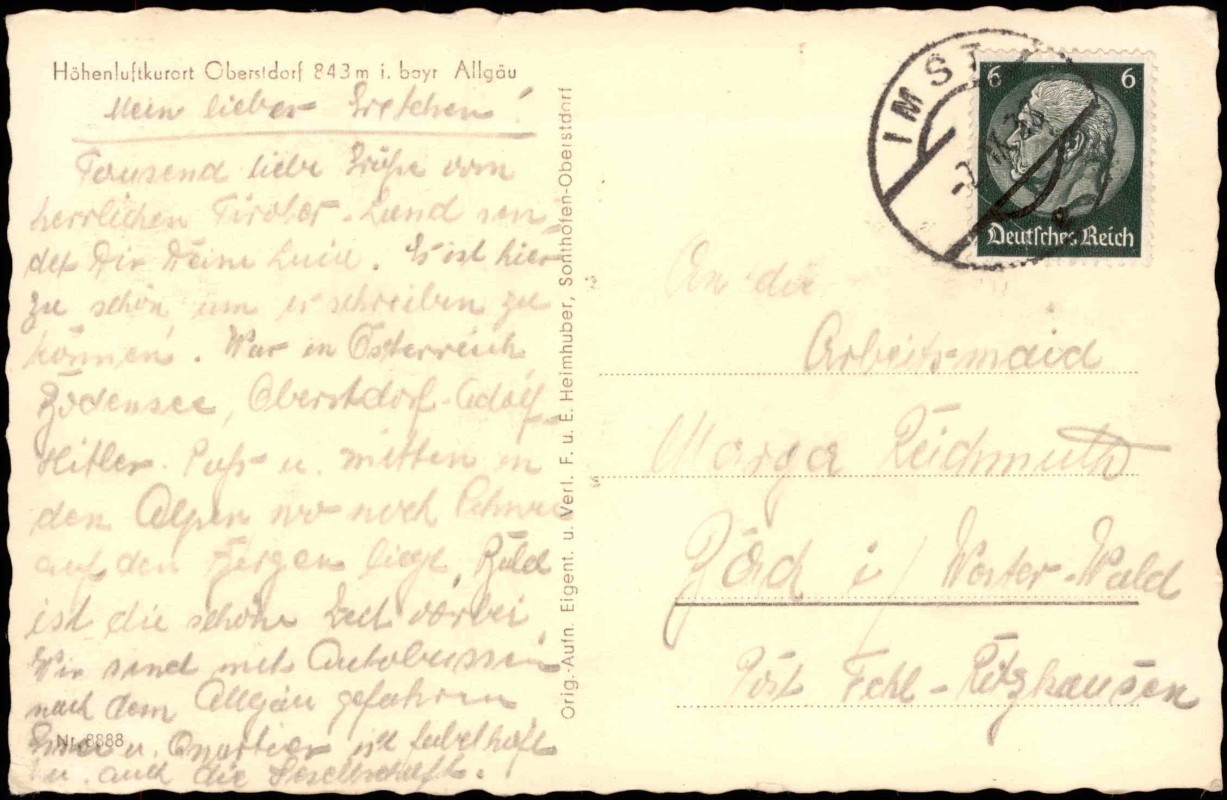 Höhenluftkurort Oberstdorf 843 m i. bayr Allgäu
Mein liebes Gretchen!
Tausend liebe Grüße vom
herrlichen Tiroler-Land sen
det Dir Deine Luise. Es ist hier
zu schön um es schreiben zu
können. War in Österreich
Bodensee, Oberstdorf-Adolf
Hitler-Paß u. mitten in
den Alpen wo noch Schnee
auf den Bergen liegt. Bald
ist die schöne Zeit vorbei.
Wir sind mit Autobussen
nach dem Allgäu gefahren
u. Quartier ist fabelhaft
u. auch die Gesellschaft.
Nr. 8888
Orig.-Aufn. Eigent. u. Verl. F. u. E. Heimhuber, Sonthofen-Oberstdorf
IMST
6 6
Deutsches Reich
An die
Arbeitsmaid
Marga Reichmuth
i/ Wester-Wald
Post Fehl-Ritzhausen